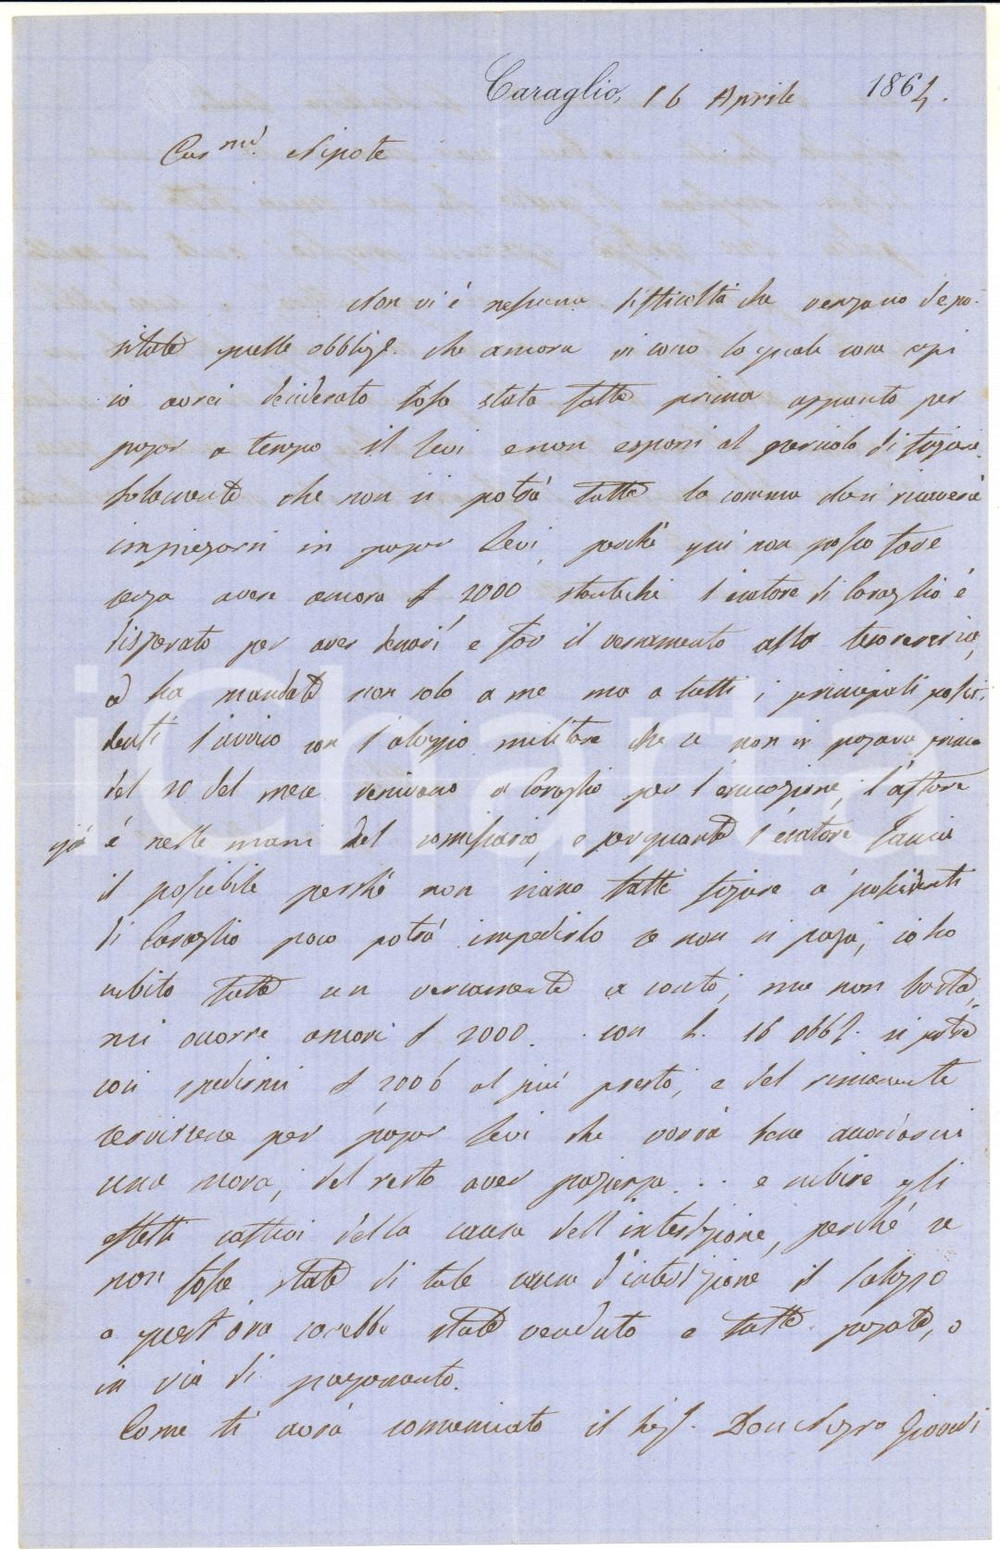 Caraglio, 16 Aprile 1864.
Car.mo Nipote
Non vi è nessuna difficoltà che vengano depo-
sitate quelle obblig. che ancora vi sono la quale cosa ogni
io avrei desiderato fosse stata fatta prima appunto per
pagar a tempo il Levi e non esporsi al pericolo di
solamente che non si potrà tutta la somma che si riceverà
impiegarsi in pagar Levi, perchè qui non posso fare
senza avere ancora £ 2000 stantechè l'esatore di Caraglio è
disperato per aver denari e far il versamento alla tesoreria,
ed ha mandato non solo a me ma a tutti i principali possi-
denti l'avviso con l'alloggio militare che se non si pagava prima
del 20 del mese venivano a Caraglio per l'esecuzione, l'affare
già è nelle mani del comissario, e per quanto l'esatore faccia
il possibile perchè non siano fatte a' possidenti
di Caraglio poco potrà impedirlo se non si paga; io ho
subito fatto un versamento a conto, ma non basta,
mi occorre ancora £ 2000. con L. 16 obbl. si potrà
così spedirmi £ 2000 al più presto, e del rimanente
servirsene per pagar Levi che vorrà bene accordarci
una mora, del resto aver pazienza... e subire gli
effetti cattivi della causa dell'interdizione, perchè se
non fosse stato di tale causa d'interdizione il palazzo
a quest'ora sarebbe stato venduto e tutto pagato, o
in via di pagamento.
Come ti avrà comunicato il Sig. Don Negro